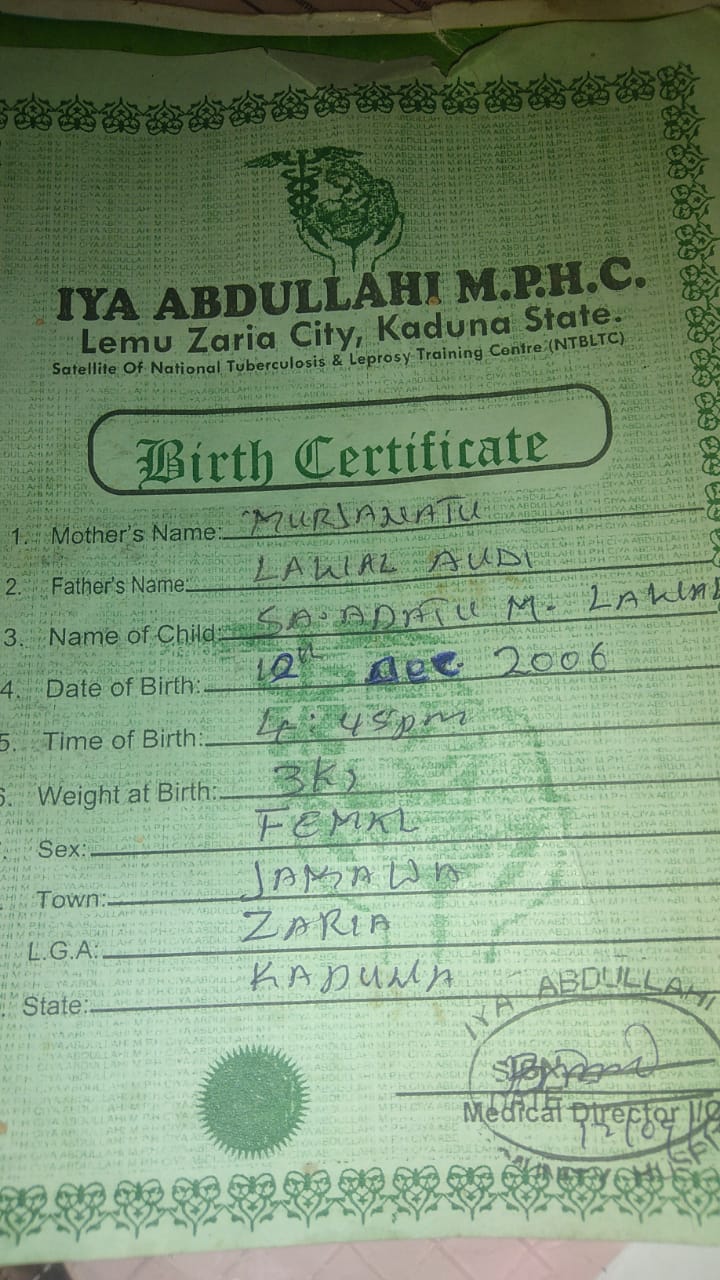 IYA ABDULLAHI M.P.H.C.
Lemu Zaria City, Kaduna State.
Satellite Of National Tuberculosis & Leprosy Training Centre (NTBLTC)
Birth Certificate
1. Mother's Name: MURJANATU
2. Father's Name: LAWAL AUDI
3. Name of Child: SA'ADATU M. LAWAL
4. Date of Birth: 12th Dec. 2006
5. Time of Birth: 4:45pm
6. Weight at Birth: 3kg
Sex: FEMKL
Town: JAMAWA
L.G.A: ZARIA
State: KADUNA
IYA ABDULLAHI
SIGN
DATE
Medical Director I/C